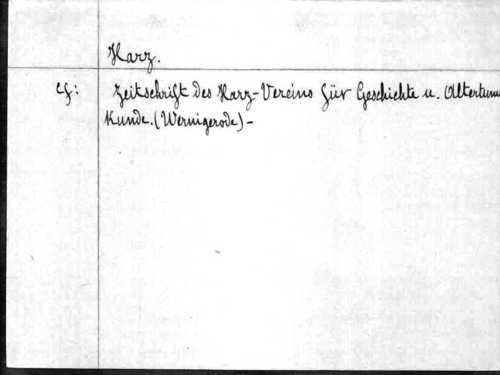 Harz.
cf: Zeitschrift des Harz-Vereins für Geschichte u. Altertums
Kunde. (Wernigerode) -